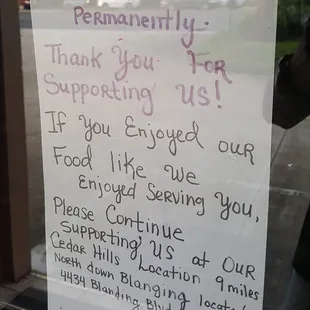 Permanently.
Thank You For
Supporting Us!
If You Enjoyed our
Food like We
Enjoyed Serving You,
Please Continue
Supporting Us at Our
Cedar Hills Location 9 miles
North down Blanging locate
4434 Blanding Blvd